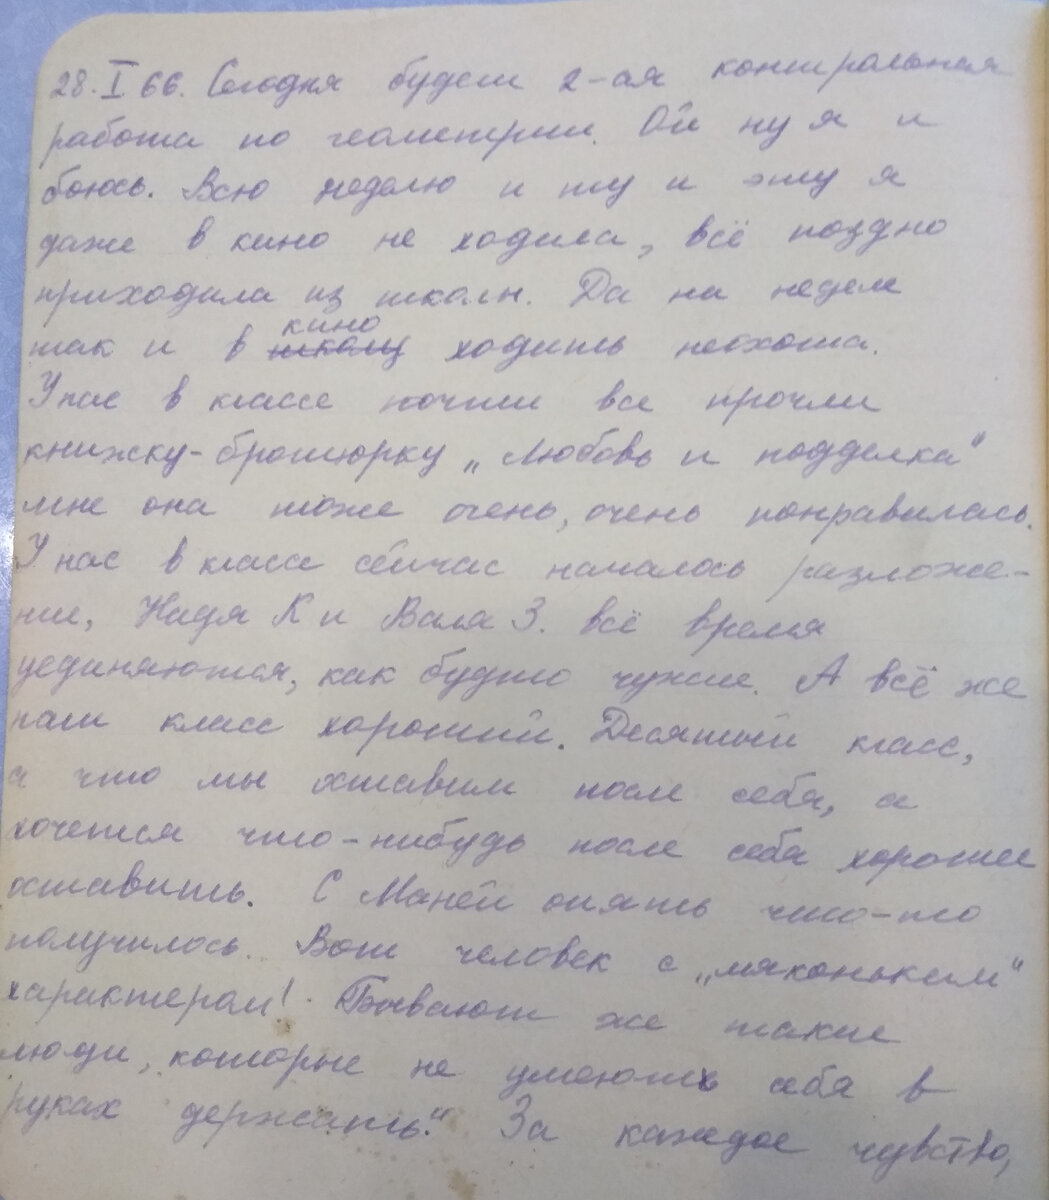 28. I 66. Сегодня будет 2-ая контрольная
работа по геометрии. Ой ну я и
боюсь. Всю неделю и ту и эту я
даже в кино не ходила, всё поздно
приходила из школы. Да на неделе
так и в школу кино ходить неохота.
У нас в классе почти все прочли
книжку-брошюрку „Любовь и подделка“
мне она тоже очень, очень понравилась.
У нас в классе сейчас началось разложе-
ние, Надя К и Валя З. всё время
уединяются, как будто чужие. А всё же
наш класс хороший. Десятый класс,
а что мы оставим после себя, а
хочется что-нибудь после себя хорошее
оставить. С Маней опять что-то
получилось. Вот человек с „мяконьким“
характером! Бывают же такие
люди, которые не умеють себя в
руках держать." За каждое чувство,